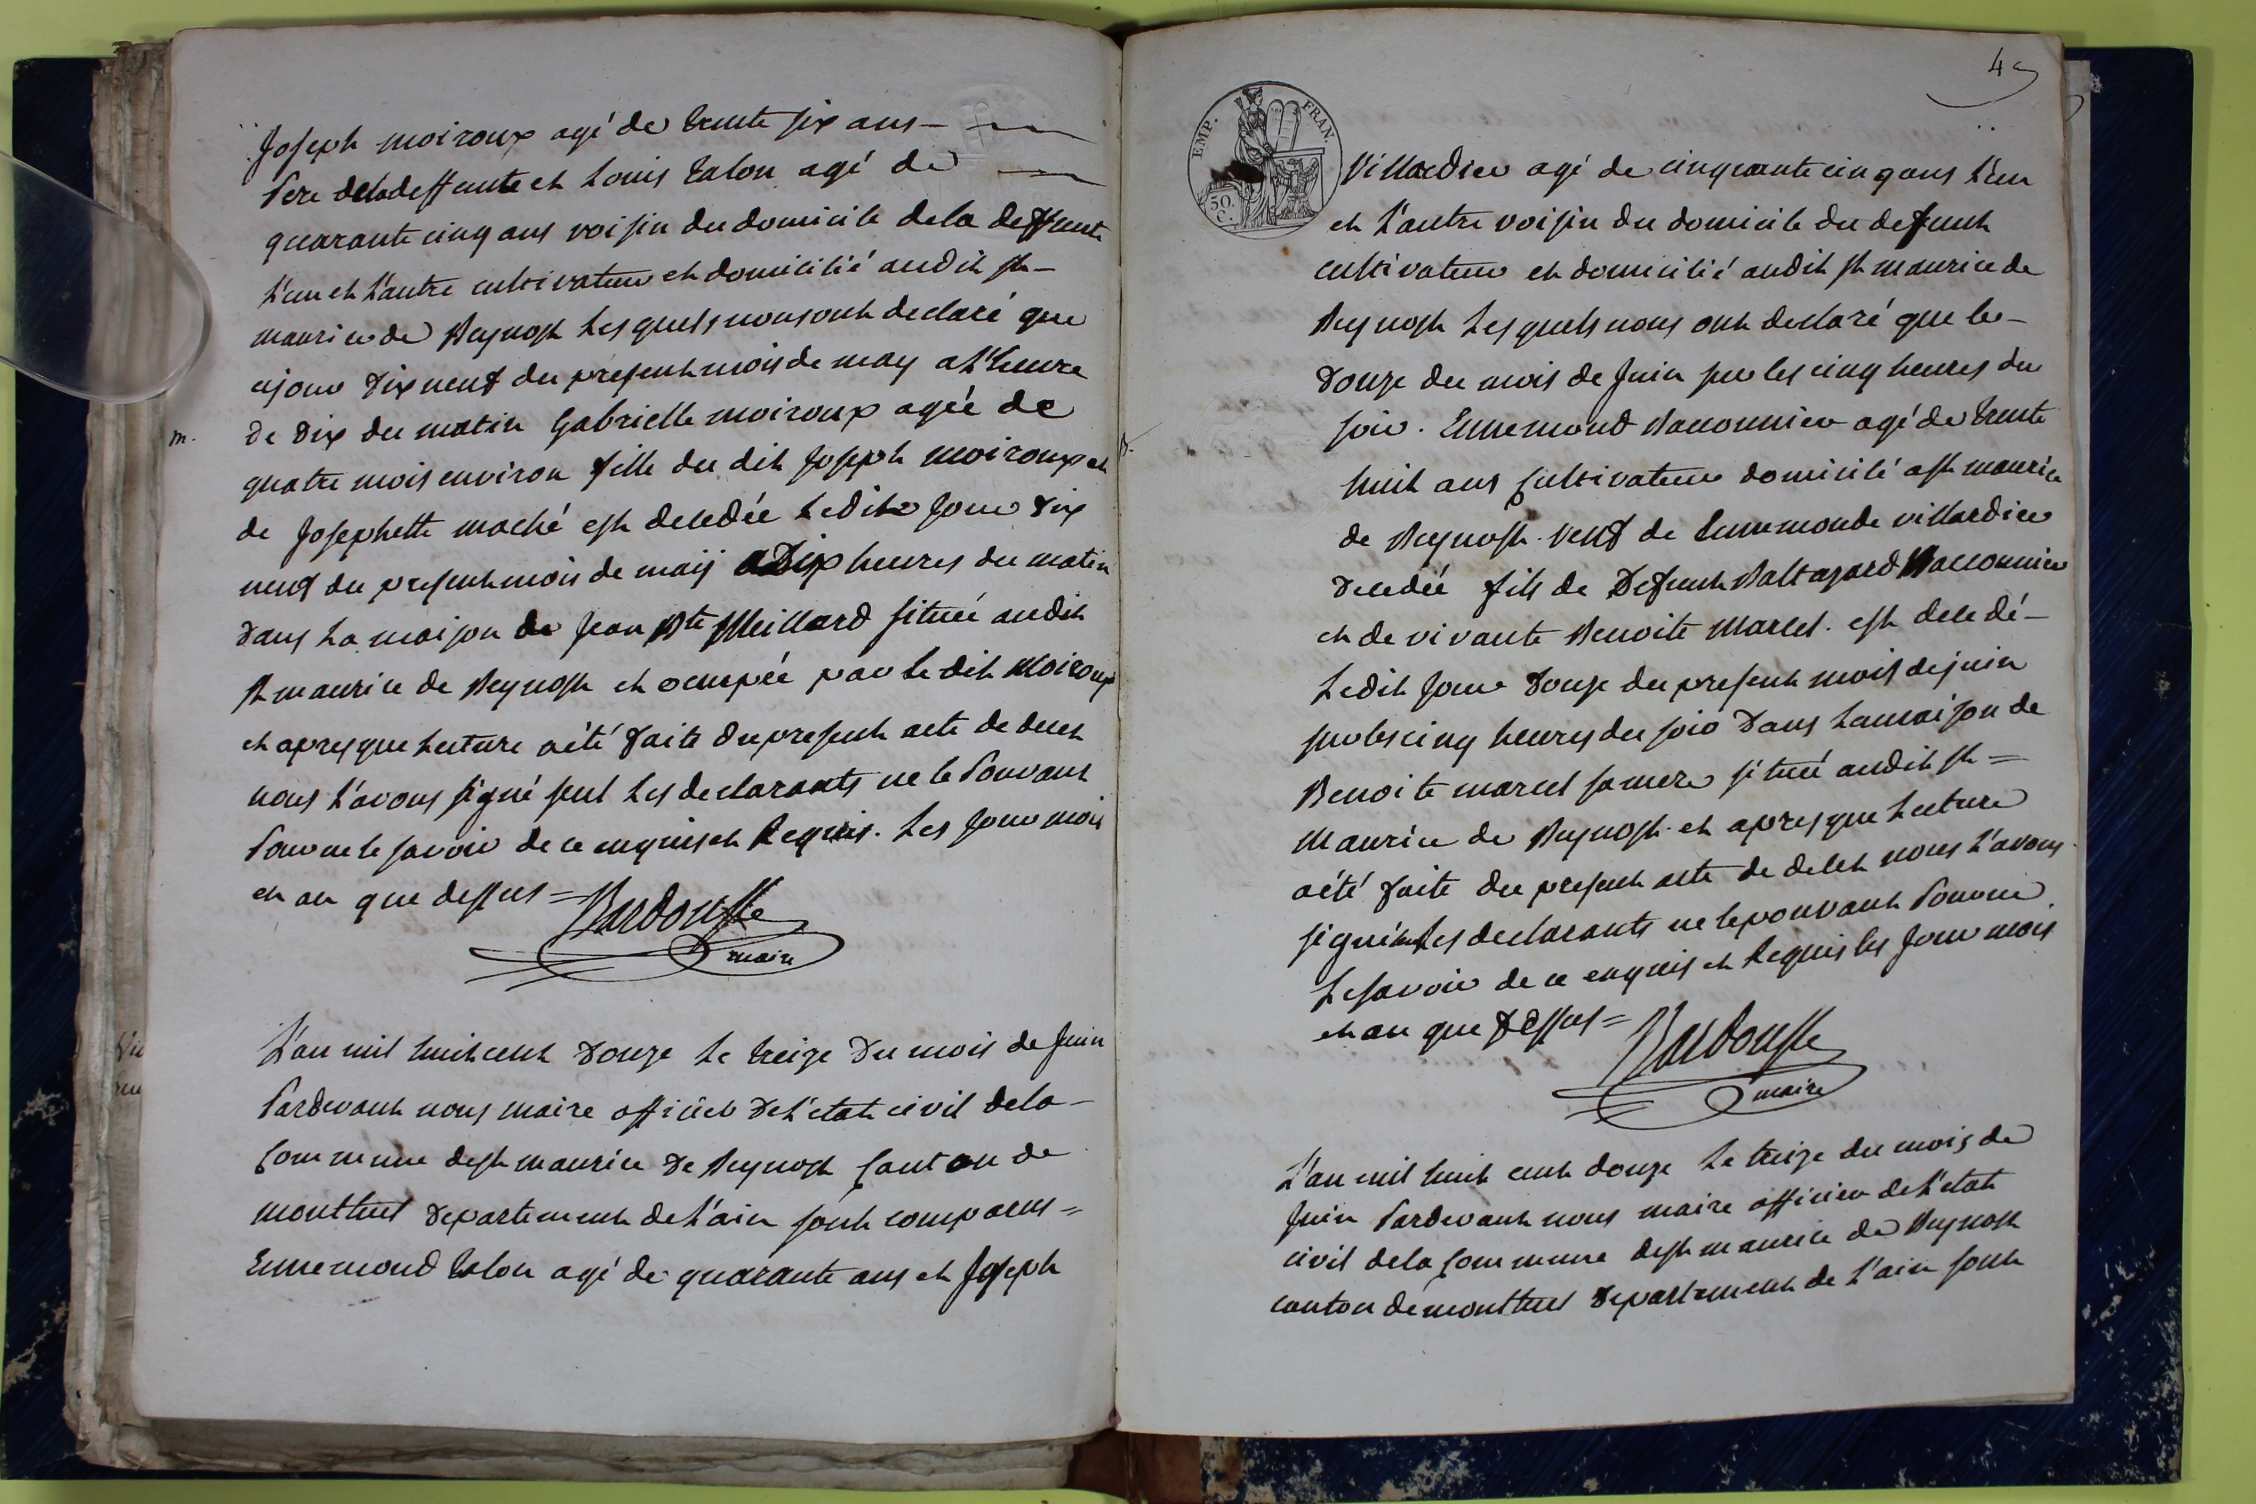 Joseph moiroux agé de trente six ans —
Pere deladeffunte et Louis talon agé de
quarante cinq ans voisin du domicile dela deffunte
l'un et l'autre cultivateur et domicilié audit st —
maurice de Beynost Les quels nous ont declaré que
cejour dix neuf du present mois de may a l'heure
m.
de dix du matin Gabrielle moiroux agée de
quatre mois environ fille du dit Joseph moiroux et
de Josephette maché est decedée Ledit Jour dix
neuf du present mois de maij a Dix heures du matin
dans La maison de Jean Bte Meillard située audit
st maurice de Beynost et ocupée par Le dit Moiroux
et apres que Lecture aété faite du present acte de deces
nous l'avons signé seul Les declarants ne le Pouvant
Pour ne le savoir de ce enquis et Requis. Les Jour mois
et an que dessus =
Bardousse
maire
L'an mil huit cent douze Le treize du mois de Juin
Pardevant nous maire officier de L'etat civil dela —
Commune dest maurice de Beynost Canton de
montluel departement de L'ain sont comparus =
Ennemond talon agé de quarante ans et Joseph
EMP. FRAN.
50.
C.
Villardier agé de cinquante cinq ans l'un
et l'autre voisin du domicile du deffunt
cultivateur et domicilié audit st maurice de
Beynost Les quels nous ont declaré que le —
douze du mois de Juin sur les cinq heures du
B.
soir. Ennemond Baconnier agé de trente
huit ans Cultivateur domicilié a st maurice
de Beynost. veuf de Ennemonde villardier
decedée fils de Defunt Baltazard Baconnier
et de vivante Benoite Marcel. est decedé —
Ledit Jour douze du present mois dejuin
sur les cinq heures du soir dans Lamaison de
Benoite marcel sa mere située audit st =
Maurice de Beynost. et apres que Lecture
aété faite du present acte de deces nous l'avons
signé Les declarants ne lepouvant Pour ne
Le savoir de ce enquis et Requis les Jour mois
et an que dessus =
Bardousse
maire
L'an mil huit cent douze Le treize du mois de
Juin Pardevant nous maire officier de L'etat
civil dela Commune dest maurice de Beynost
canton de montluel departement de L'ain sont